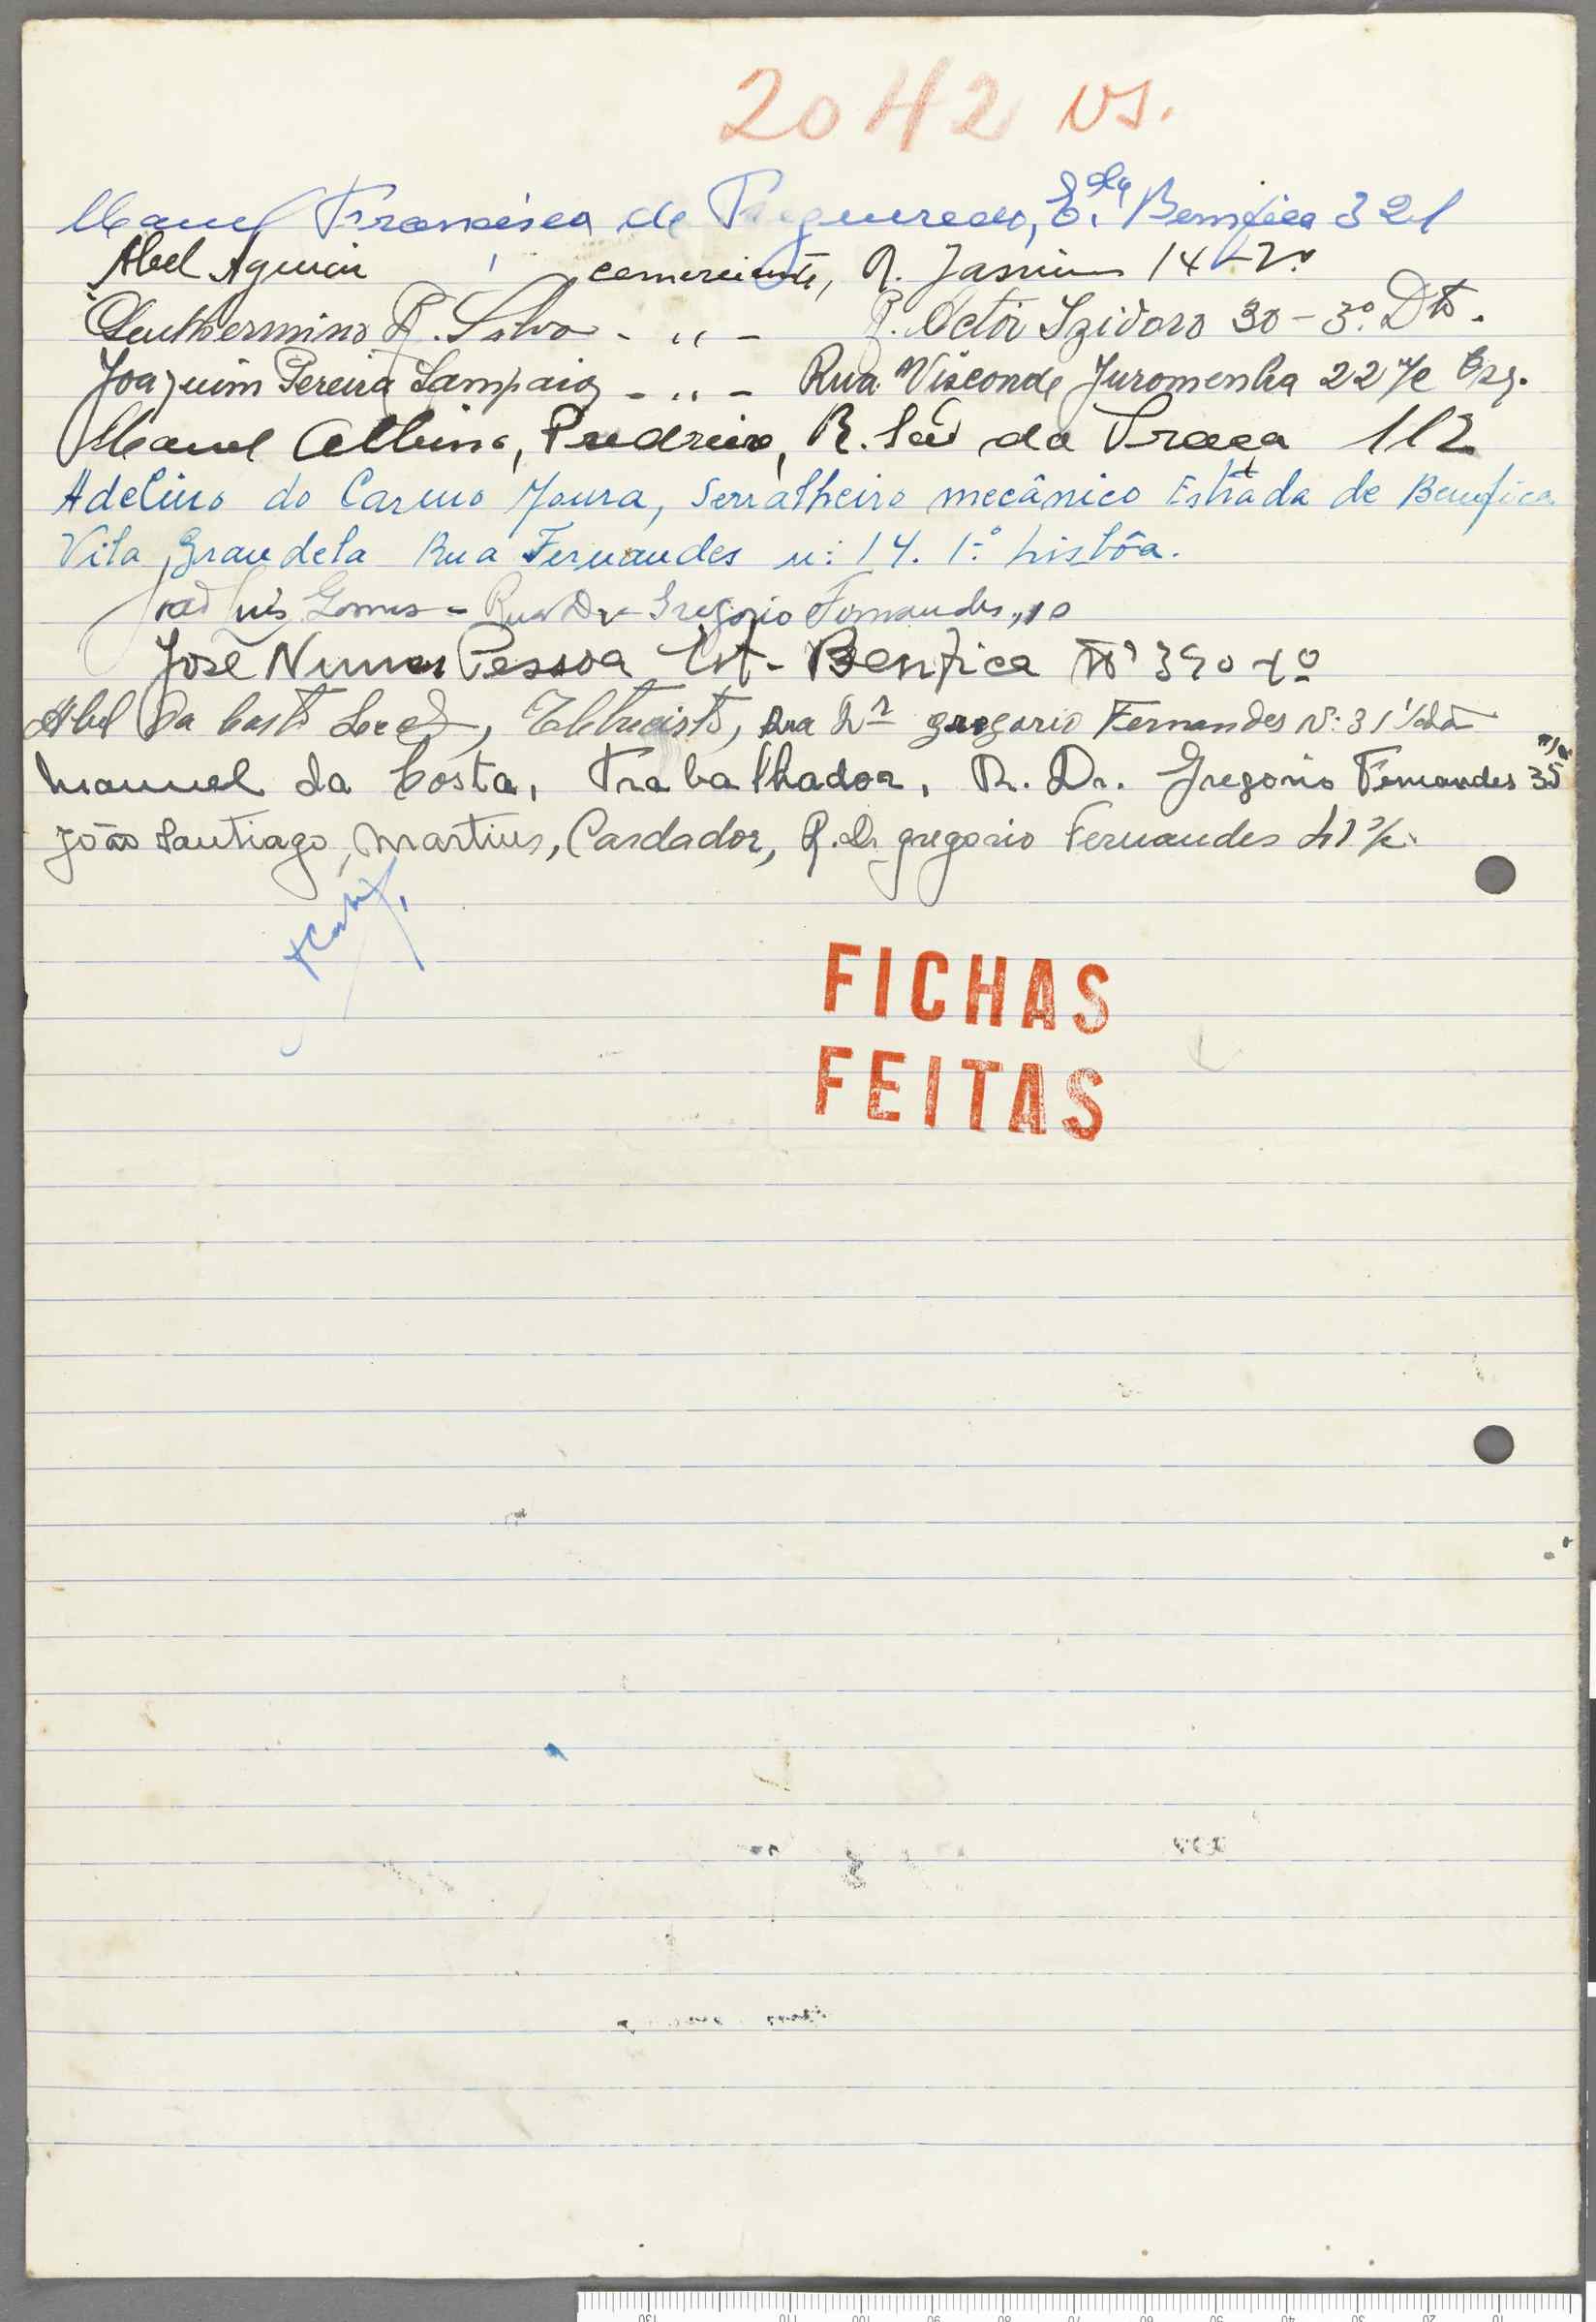 2042 vs.
Manuel Francisco de Figueiredo, E.da Bemfica 321
Abel Aguiar comerciante, R. Jasmim 14-2º
R. Silva - " - R. Actor Izidoro 30-3º. Dto.
Joaquim Pereira Sampaio - " - Rua Visconde Juromenha 22 r/c Esq.
Manuel Albino, Pedreiro, R. São da Praça 112
Adelino do Carmo Moura, Serralheiro mecânico Estrada de Benfica
Vila Grandela Rua Fernandes n: 14. 1-º Lisbôa.
Luís Gomes - Rua Dr Gregorio Fernandes, 10
José Nunes Pessoa Est- Benfica Nº 390
Abel da Costa, Rua Dr gregorio Fernandes Nº: 31
Manuel da Costa, Trabalhador, R. Dr. Gregorio Fernandes 35
João Santiago Martins, Cardador, R. Dr gregorio Fernandes
FICHAS
FEITAS